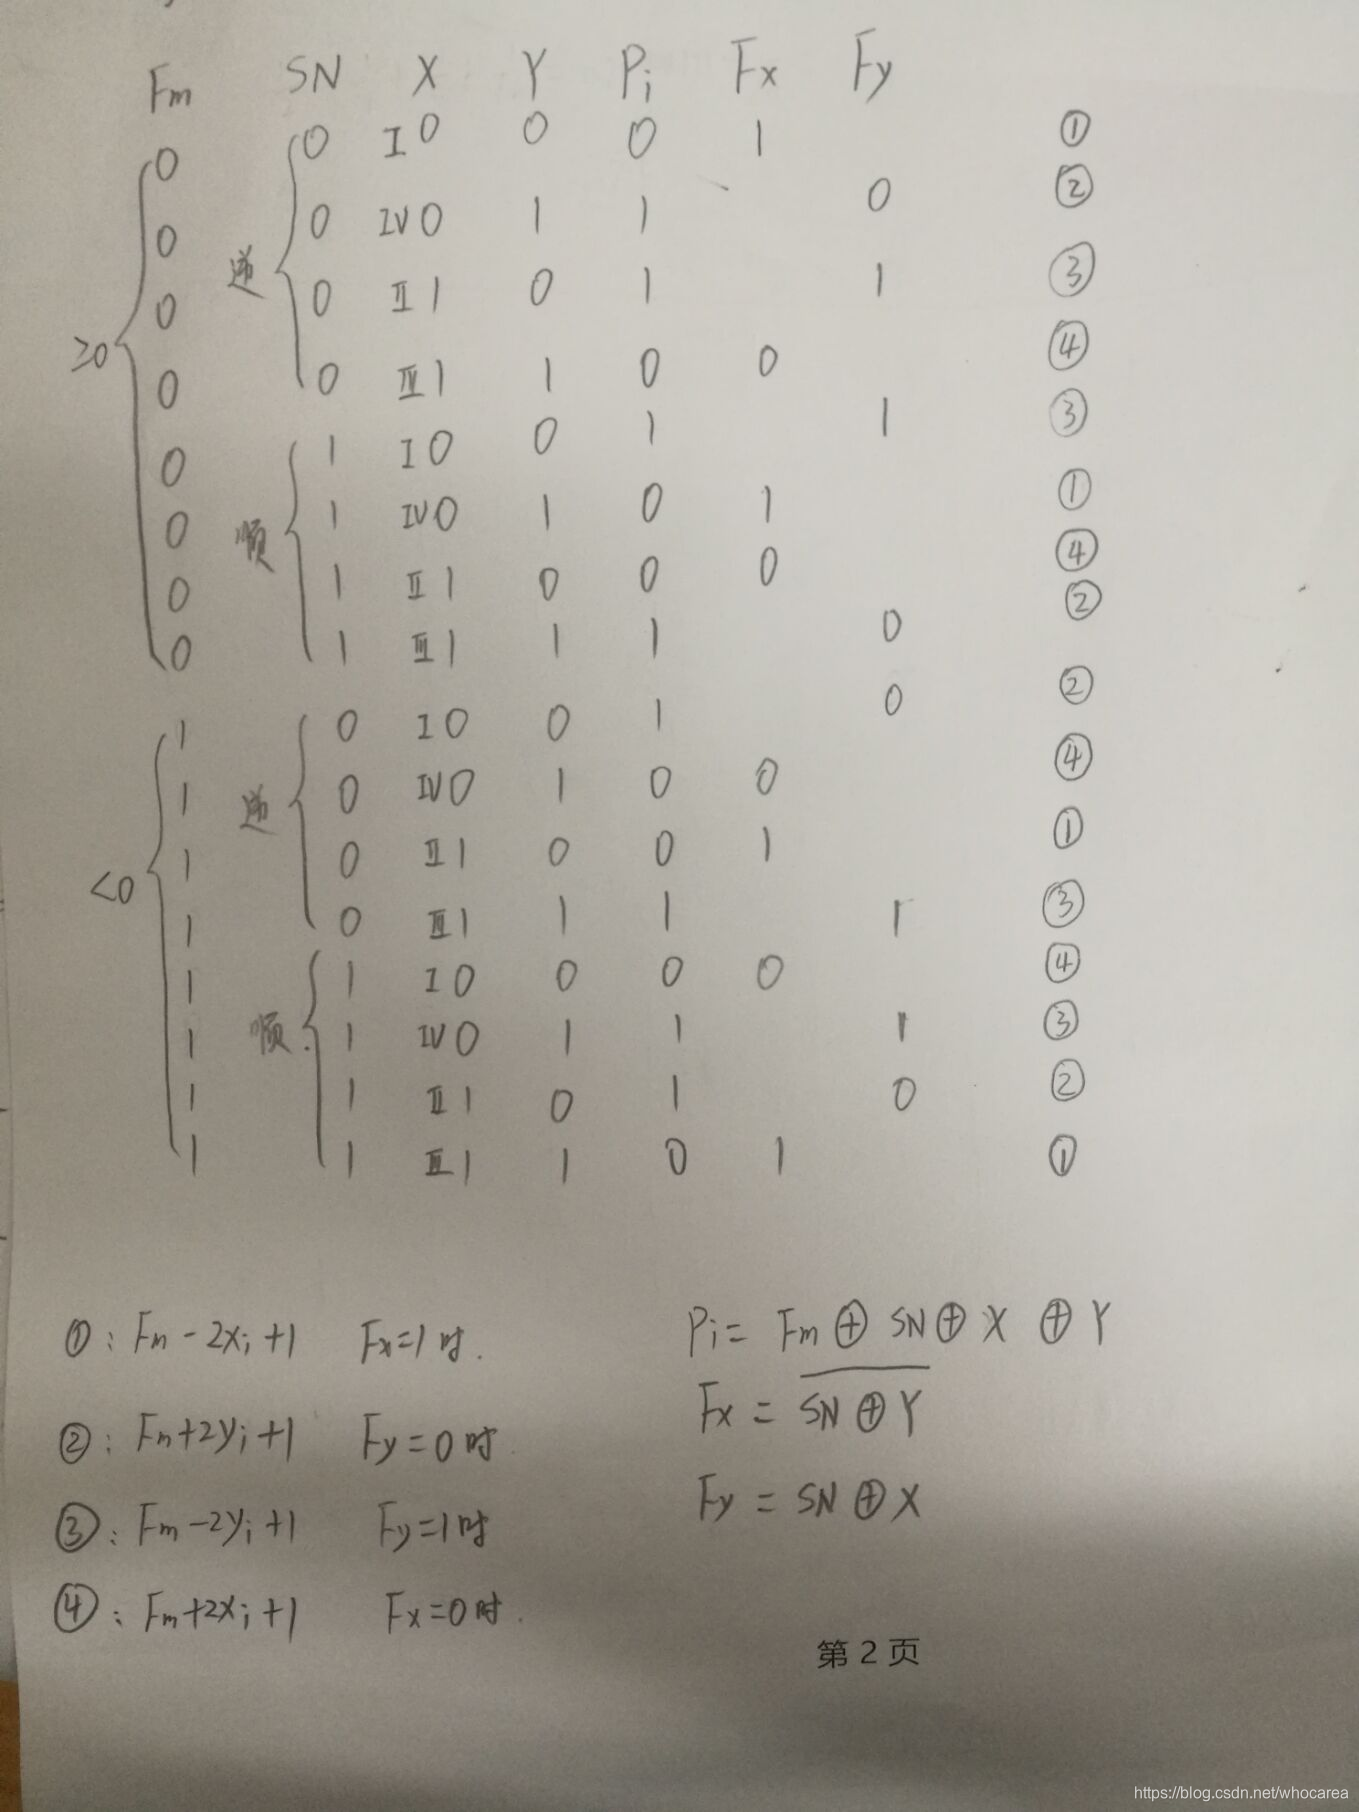 Fm SN X Y Pi Fx Fy
0 0 I 0 0 0 1 ①
0 0 IV 0 1 1 0 ②
0 逆 0 II 1 0 1 1 ③
≥0 0 0 III 1 1 0 0 ④
0 1 I 0 0 1 1 ③
0 顺 1 IV 0 1 0 1 ①
0 1 II 1 0 0 0 ④
0 1 III 1 1 1 0 ②
1 0 I 0 0 1 0 ②
1 逆 0 IV 0 1 0 0 ④
<0 1 0 II 1 0 0 1 ①
1 0 III 1 1 1 1 ③
1 1 I 0 0 0 0 ④
1 顺 1 IV 0 1 1 1 ③
1 1 II 1 0 1 0 ②
1 1 III 1 1 0 1 ①
①: Fm-2xi+1 Fx=1时.
②: Fm+2yi+1 Fy=0时.
③: Fm-2yi+1 Fy=1时
④: Fm+2xi+1 Fx=0时.
Pi= Fm⊕SN⊕X⊕Y
Fx = \overline{SN⊕Y}
Fy = SN⊕X
第 2 页
https://blog.csdn.net/whocarea